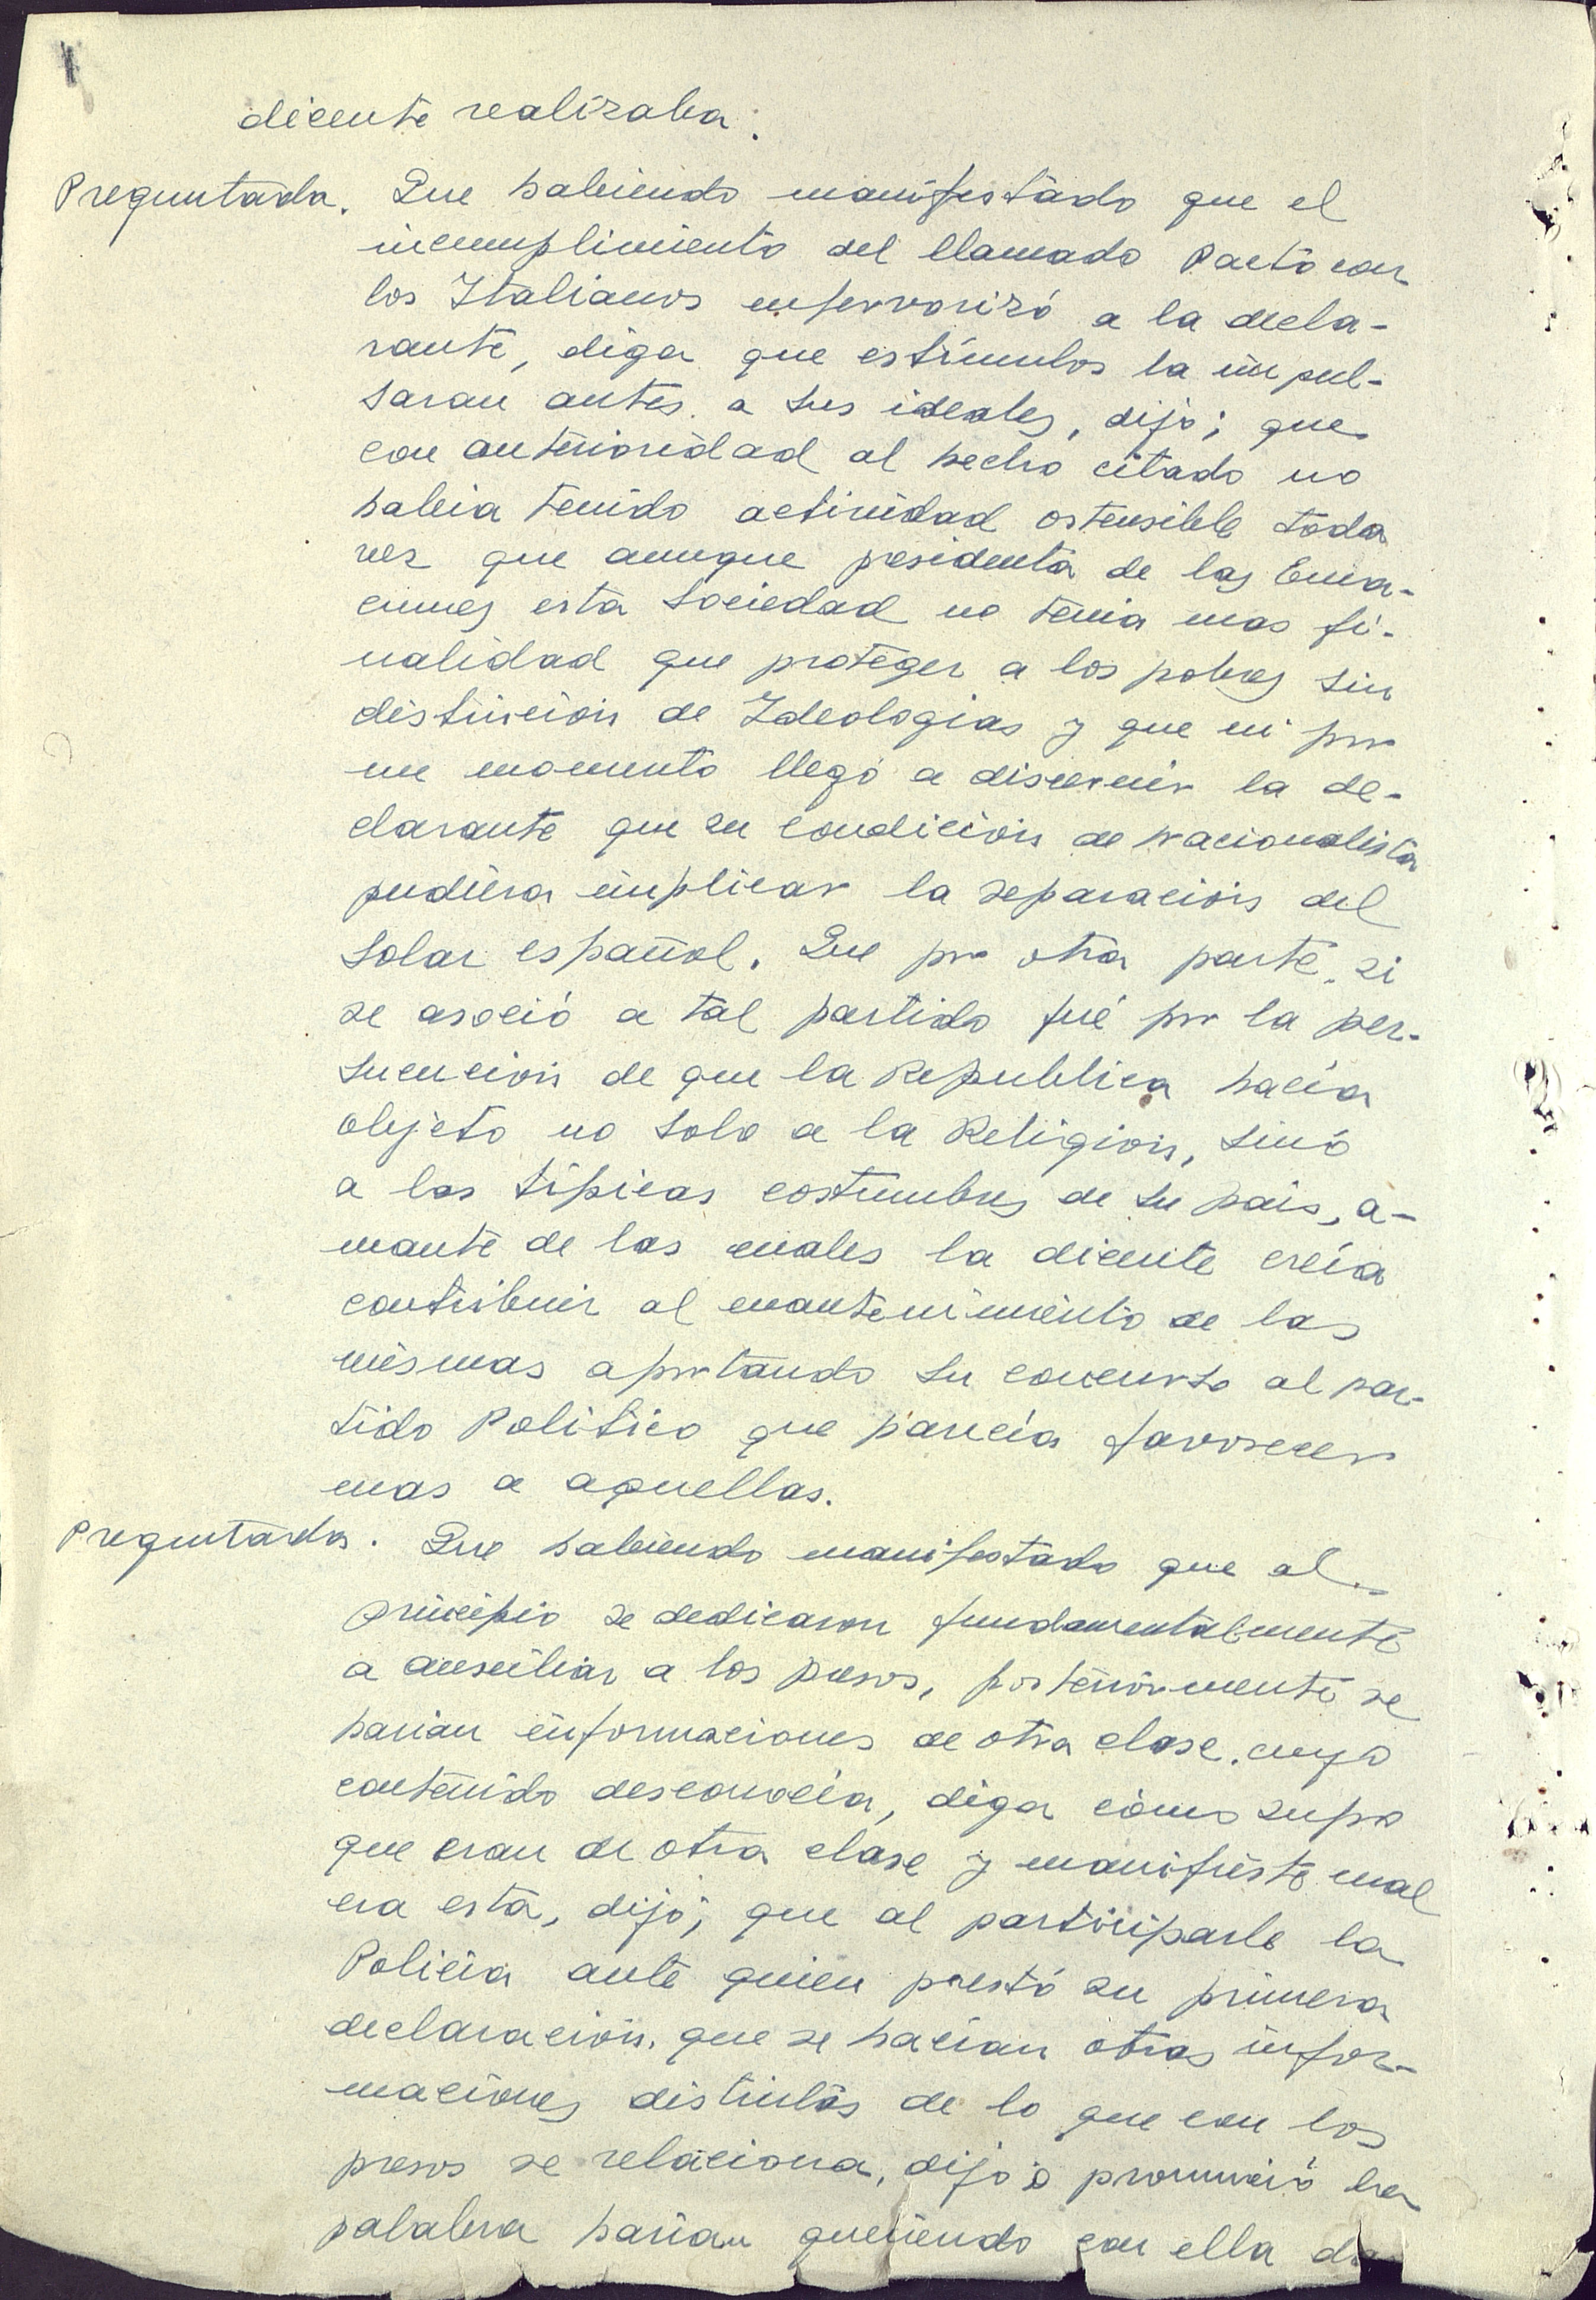 dicente realizaba.
Preguntada. Que habiendo manifestado que el
incumplimiento del llamado Pacto con
los Italianos enfervorizó a la decla-
rante, diga que estímulos la impul-
saran antes a sus ideales, dijo; que
con anterioridad al hecho citado no
habia tenido actividad ostensible toda
vez que aunque presidenta de las Ema-
cumes esta sociedad no tenia mas fi-
nalidad que proteger a los pobres sin
distincion de Ideologias y que ni por
un momento llegó a discernir la de-
clarante que su condicion de nacionalista
pudiera implicar la separacion del
solar español. Que por otra parte, si
se asoció a tal partido fué por la per-
sucucion de que la Republica hacia
objeto no solo a la Religion, sinó
a las tipicas costumbres de su pais, a-
mante de las cuales la dicente creia
contribuir al mantenimiento de las
mismas aportando su concurso al par-
tido Politico que parecia favorecer
mas a aquellas.
Preguntada. Que habiendo manifestado que al
principio se dedicaron fundamentalmente
a ausiliar a los presos, posteriormente se
harian informaciones de otra clase, cuyo
contenido desconocia, diga cómo supo
que eran de otra clase y manifieste cual
era esta, dijo; que al participarle la
Policia ante quien prestó su primera
declaracion, que se hacian otras infor-
maciones distintas de lo que con los
presos se relaciona, dijo o pronunció la
palabra harian queriendo con ella